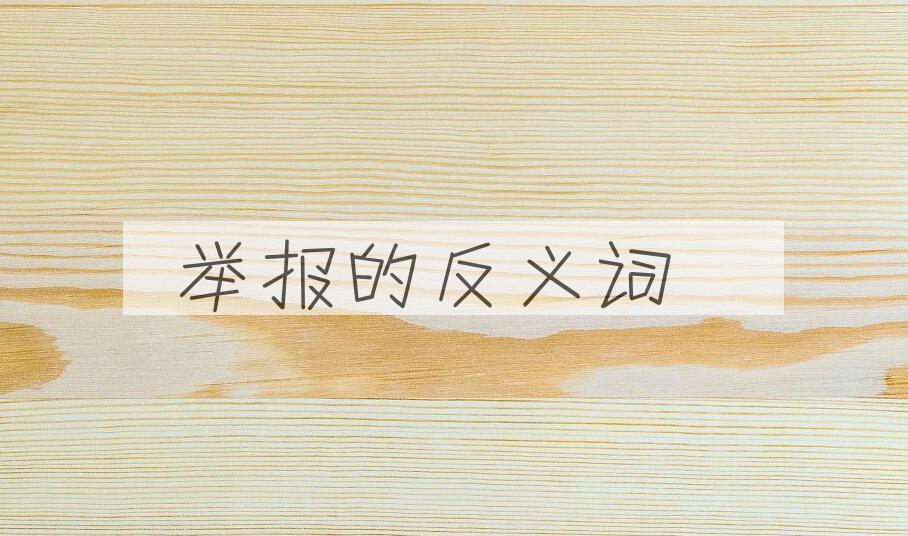 举报的反义词